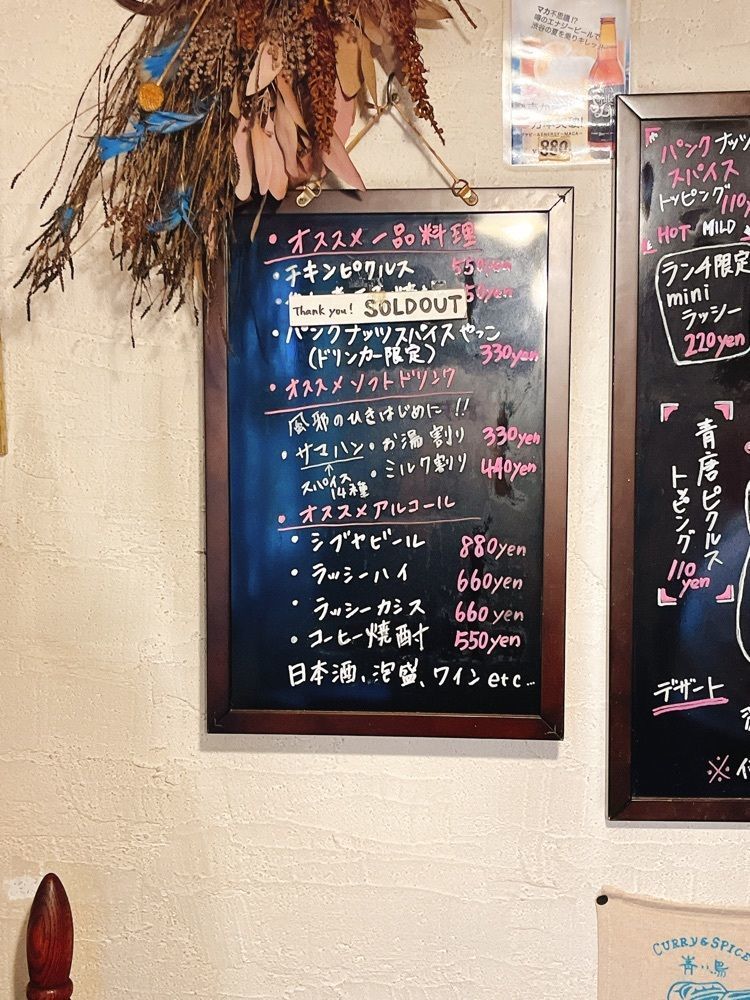 マカ不思議!?
噂のエナジービールで
渋谷の夏を乗りキレッ
¥880
・オススメ一品料理
・チキンピクルス 550yen
50yen
Thank you! SOLDOUT
・パンクナッツスパイスやっこ
(ドリンカー限定) 330yen
・オススメソフトドリンク
風邪のひきはじめに!!
・サマハン・お湯割り 330yen
↑
スパイス
14種
・ミルク割り 440yen
・オススメアルコール
・シブヤビール 880yen
・ラッシーハイ 660yen
・ラッシーカシス 660yen
・コーヒー焼酎 550yen
日本酒、泡盛、ワインetc...
パンクナッツ
スパイス
トッピング110y
HOT MILD
ランチ限定
mini
ラッシー
220yen
青唐ピクルス
トッピング
110
yen
デザート
※
CURRY&SPICE
青い鳥